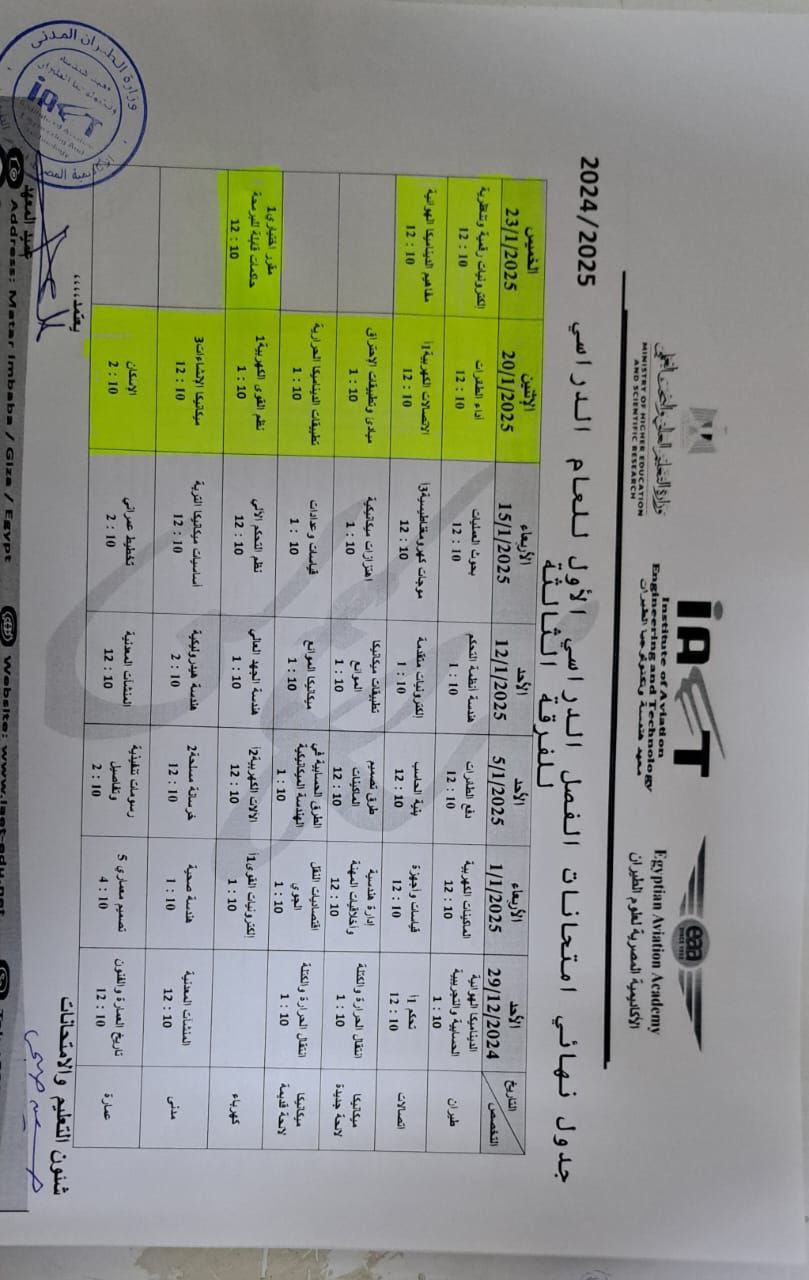 وزارة التعليم العالي والبحث العلمي
MINISTRY OF HIGHER EDUCATION
AND SCIENTIFIC RESEARCH
iAET
Institute of Aviation
Engineering and Technology
معهد هندسة وتكنولوجيا الطيران
eaa
Egyptian Aviation Academy
الأكاديمية المصرية لعلوم الطيران
جدول نهائي امتحانات الفصل الدراسي الأول للعام الدراسي 2024/2025
للفرقة الثالثة
التاريخ
التخصص
الأحد 29/12/2024
الأربعاء 1/1/2025
الأحد 5/1/2025
الأحد 12/1/2025
الأربعاء 15/1/2025
الإثنين 20/1/2025
الخميس 23/1/2025
طيران
الديناميكا الهوائية الحسابية والتجريبية 10 : 1
الماكينات الكهربية 10 : 12
دفع الطائرات 10 : 12
هندسة أنظمة التحكم 10 : 1
بحوث العمليات 10 : 12
أداء الطائرات 10 : 12
الكترونيات رقمية وتناظرية 10 : 12
اتصالات
تحكم 1أ 10 : 12
قياسات وأجهزة 10 : 12
بنية الحاسب 10 : 12
إلكترونيات متقدمة 10 : 1
موجات كهرومغناطيسية 3أ 10 : 12
الاتصالات الكهربية 1أ 10 : 12
مفاهيم الديناميكا الهوائية 10 : 12
ميكانيكا لائحة جديدة
انتقال الحرارة والكتلة 10 : 1
إدارة هندسية وأخلاقيات المهنة 10 : 12
طرق تصميم الماكينات 10 : 12
تطبيقات ميكانيكا الموائع 10 : 1
اهتزازات ميكانيكية 10 : 1
مبادئ وتطبيقات الإحتراق 10 : 1
ميكانيكا لائحة قديمة
انتقال الحرارة والكتلة 10 : 1
اقتصاديات النقل الجوي 10 : 1
الطرق الحسابية في الهندسة الميكانيكية 10 : 1
ميكانيكا الموائع 10 : 1
قياسات وعدادات 10 : 1
تطبيقات الديناميكا الحرارية 10 : 1
كهرباء
إلكترونيات القوى 1أ 10 : 1
الآلات الكهربية 2أ 10 : 12
هندسة الجهد العالي 10 : 1
نظم التحكم الآلي 10 : 12
نظم القوى الكهربية 1 10 : 1
مقرر اختياري 1 حاكمات قابلة للبرمجة 10 : 12
مدنى
المنشآت المعدنية 10 : 12
هندسة صحية 10 : 1
خرسانة مسلحة 2 10 : 12
هندسة هيدروليكية 10 : 2
أساسيات ميكانيكا التربة 10 : 12
ميكانيكا الإنشاءات 3 10 : 12
عمارة
تاريخ العمارة والفنون 10 : 12
تصميم معماري 5 10 : 4
رسومات تنفيذية وتفاصيل 10 : 2
المنشآت المعدنية 10 : 12
تخطيط عمراني 10 : 2
الإسكان 10 : 2
شئون التعليم والامتحانات
يعتمد،،،،
عميد المعهد
وزارة الطيران المدني
iAET
Address: Matar Imbaba / Giza / Egypt
Website: www.iaet.edu